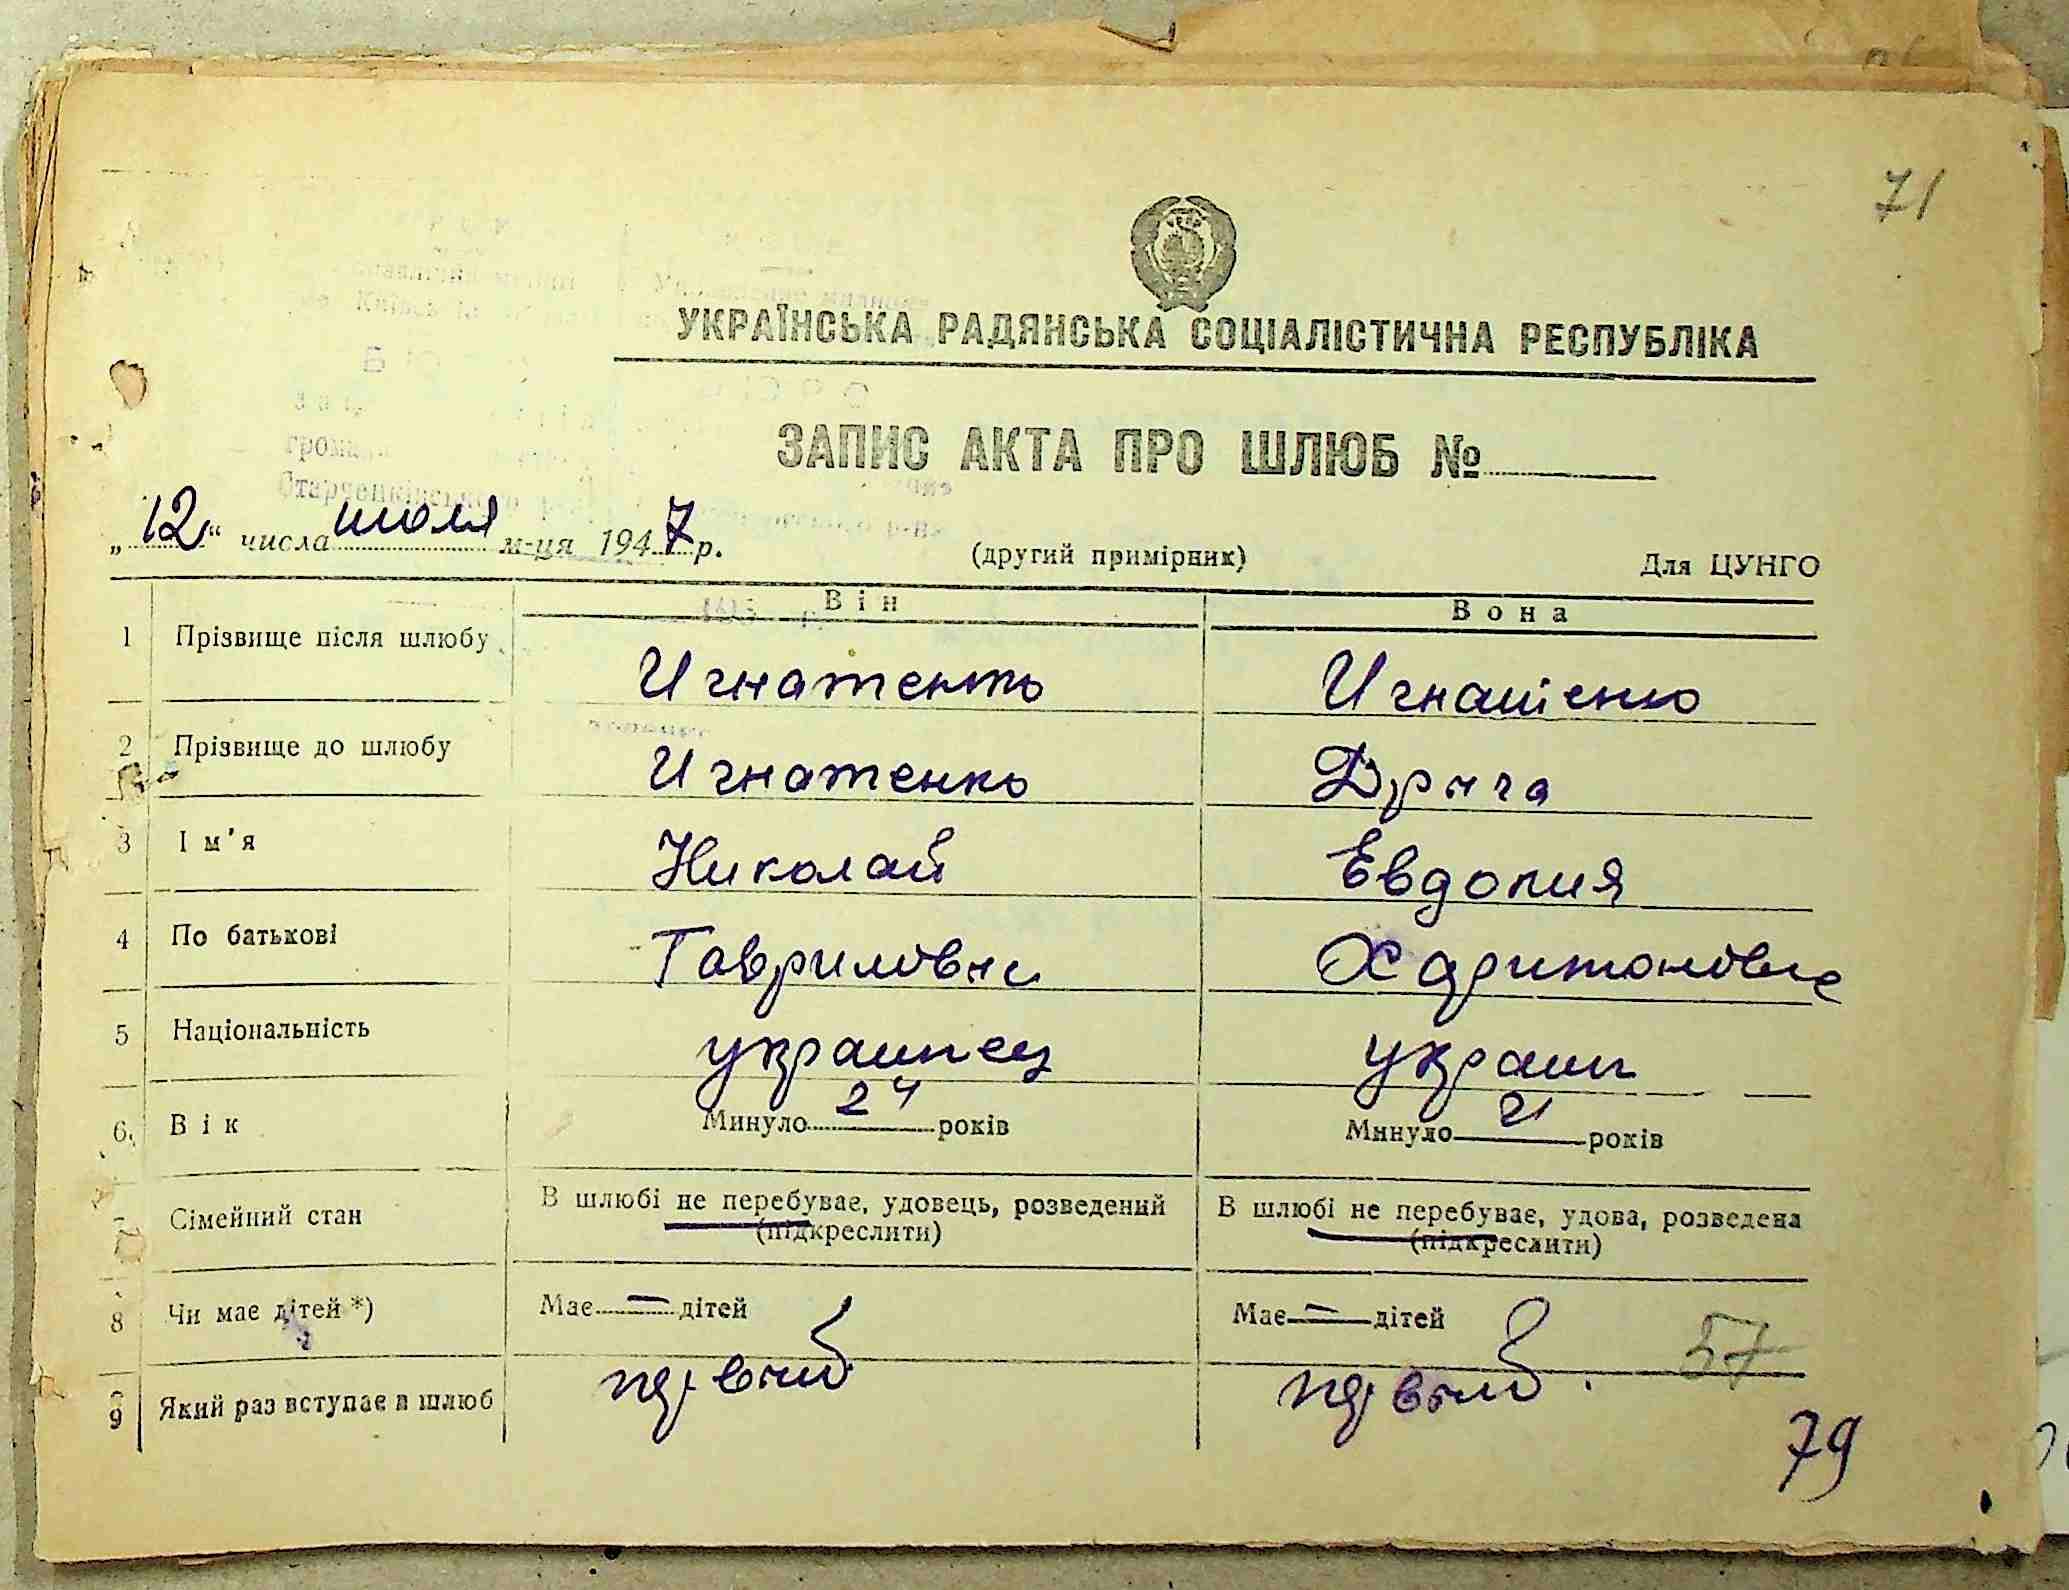 71
УКРАЇНСЬКА РАДЯНСЬКА СОЦІАЛІСТИЧНА РЕСПУБЛІКА
ЗАПИС АКТА ПРО ШЛЮБ №
„12“ числа июля м-ця 1947 р. (другий примірник) Для ЦУНГО
Він Вона
1 Прізвище після шлюбу Игнатенко Игнатенко
2 Прізвище до шлюбу Игнатенко
3 Ім'я Николай Евдокия
4 По батькові Гаврилович Харитоновна
5 Національність украинец украин
6 Вік Минуло 24 років Минуло 21 років
Сімейний стан В шлюбі не перебуває, удовець, розведений В шлюбі не перебуває, удова, розведена
(підкреслити) (підкреслити)
8 Чи має дітей *) Має — дітей Має — дітей
57
9 Який раз вступає в шлюб первый первый
79